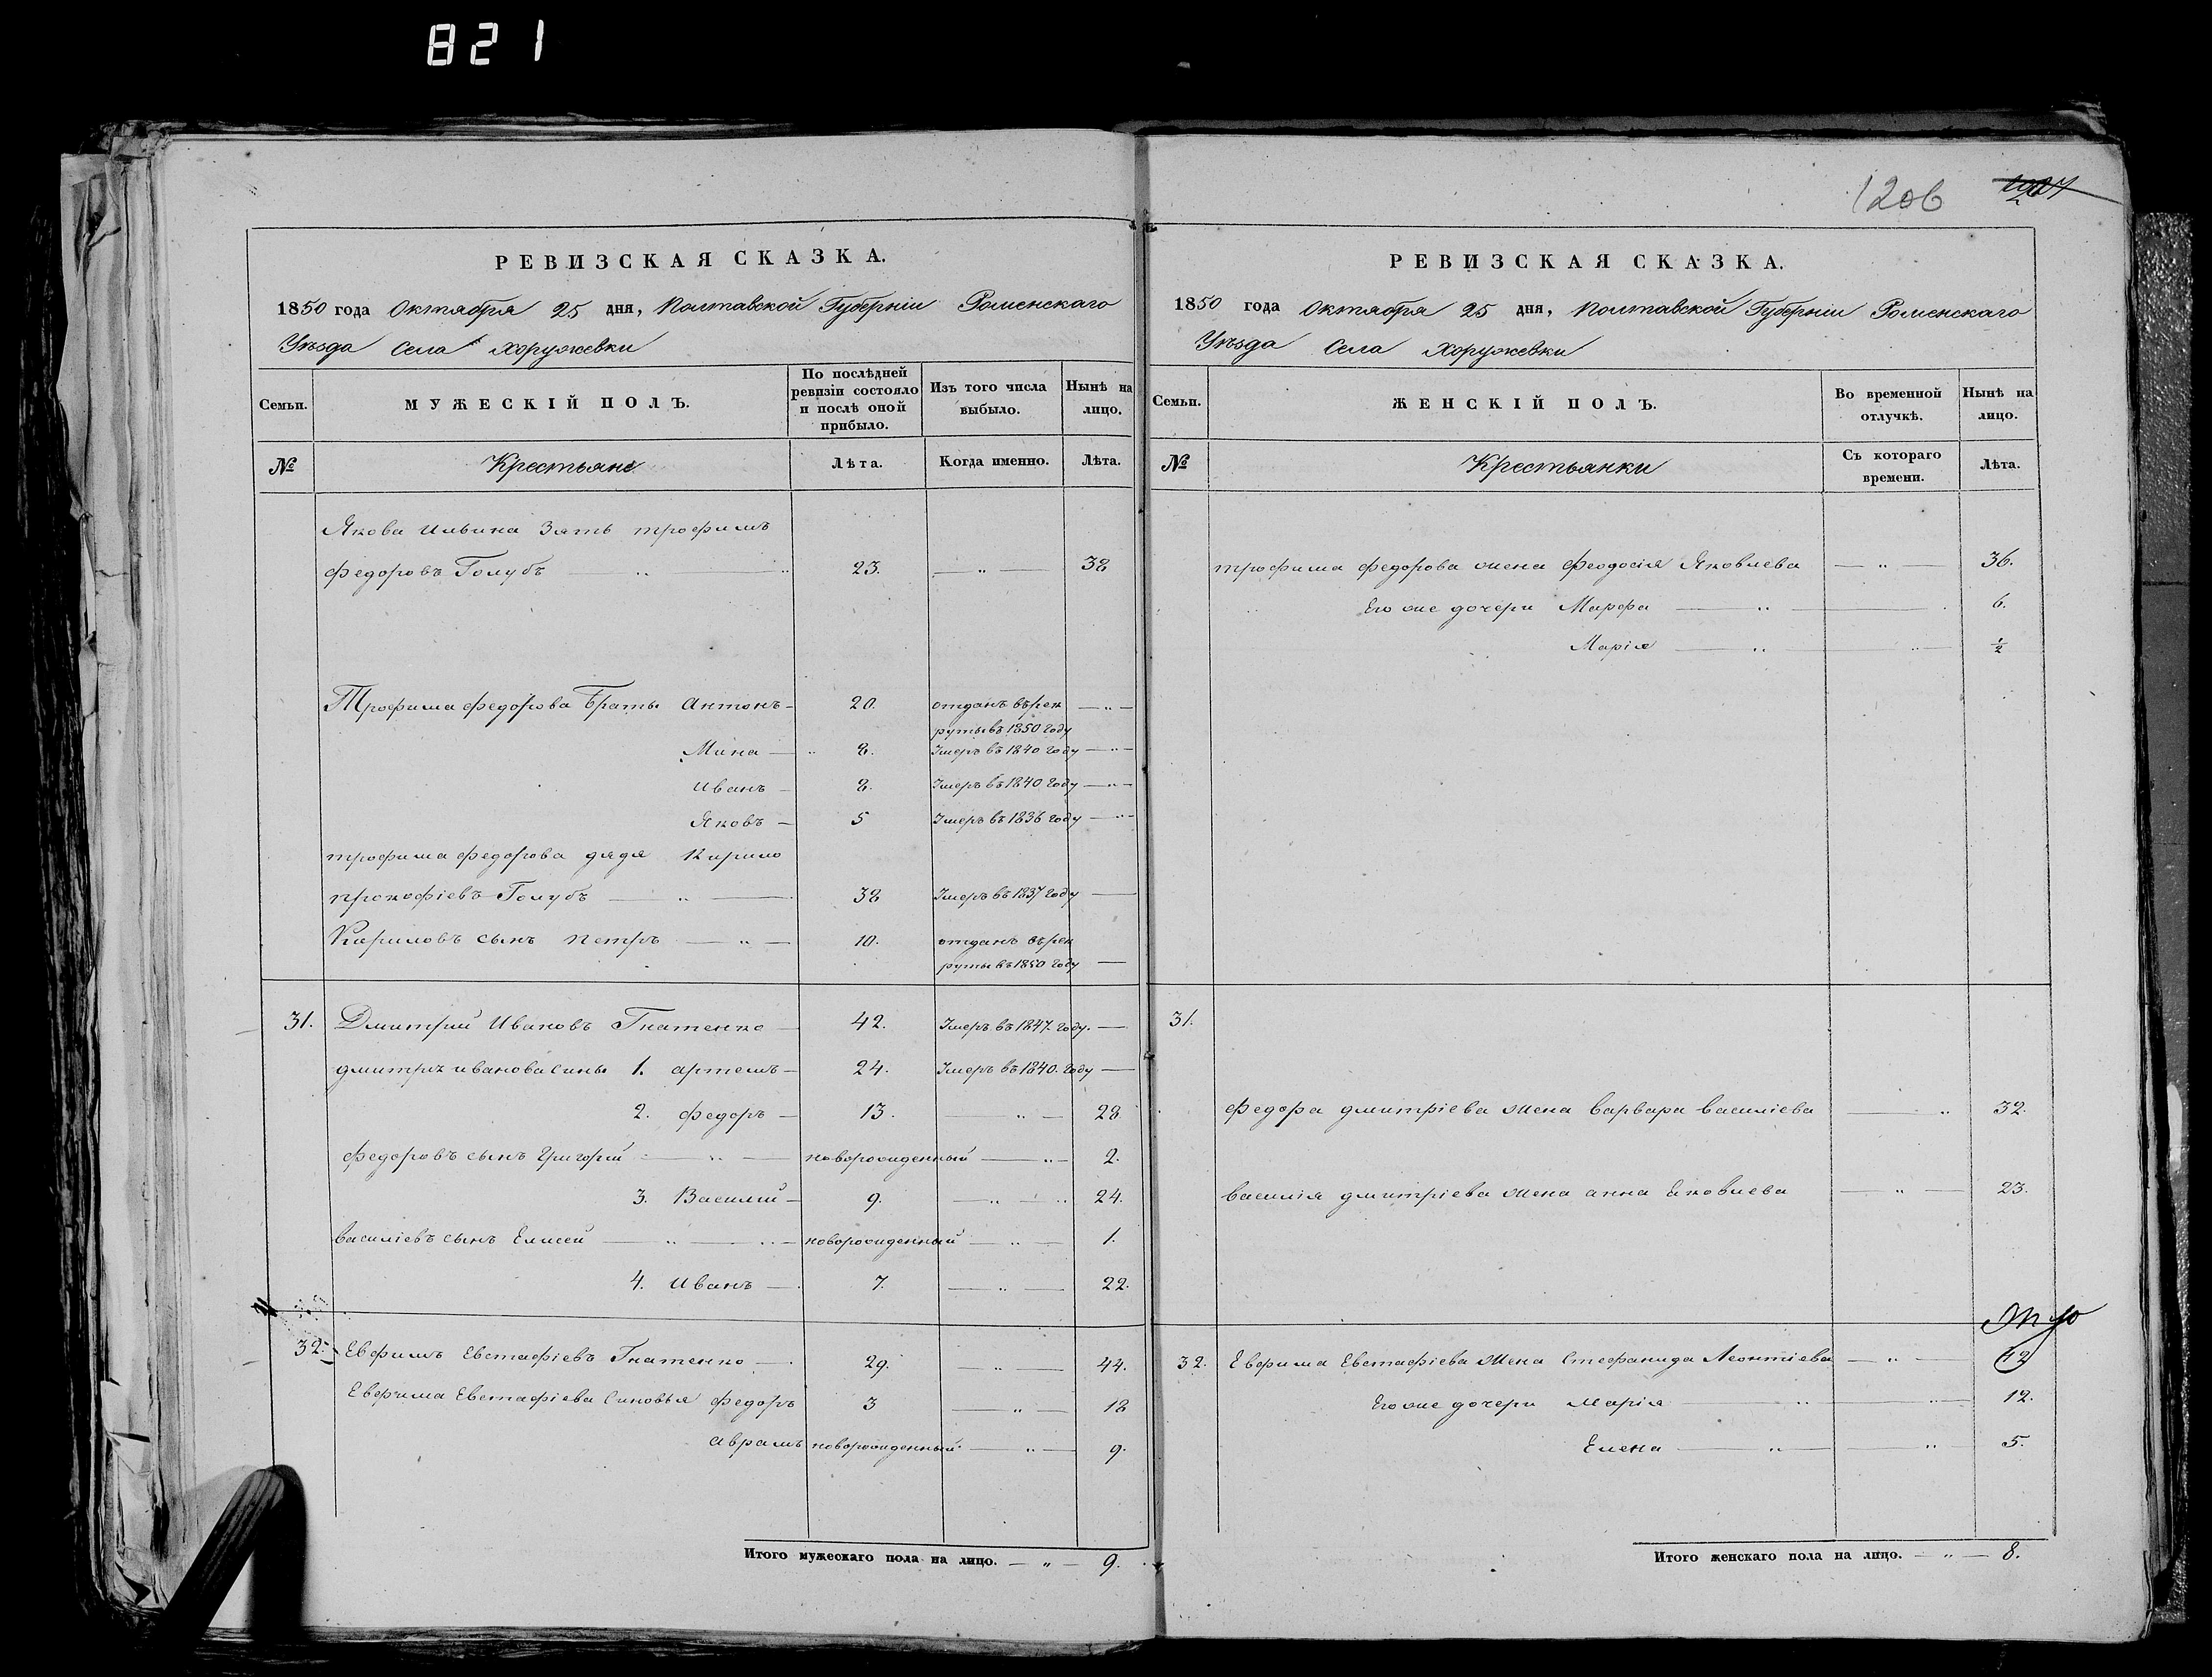 821
1206
РЕВИЗСКАЯ СКАЗКА.
1850 года Октября 25 дня, Полтавской Губерніи Роменскаго
Уѣзда Села Хоружевки
Семьи.
МУЖЕСКІЙ ПОЛЪ.
По послѣдней ревизіи состояло и послѣ оной прибыло.
Изъ того числа выбыло.
Нынѣ на лицо.
№
Крестьяне
Лѣта.
Когда именно.
Лѣта.
Якова Ильина Зять трофимъ
федоровъ Голубъ 23. 38
Трофима федорова Браты Антонъ 20. отданъ вѣрек
руты въ 1850 году
Мина 8. Умеръ въ 1840 году
Иванъ 8. Умеръ въ 1840 году
Яковъ 5 Умеръ въ 1836 году
трофима федорова дядя Кирило
прокофіевъ Голубъ 38 Умеръ въ 1837 году
Кириловъ сынъ петръ 10. отданъ вѣрек
руты въ 1850 году
31. Дмитрий Ивановъ Гнатенко 42. Умеръ въ 1847. году.
дмитрія иванова сины 1. артемъ 24. Умеръ въ 1840. году
2. федоръ 13. 28
федоровъ сынъ григорий новорожденный 2.
3. Василий 9. 24.
василіевъ сынъ Елисей новорожденный 1.
4. Иванъ 7. 22.
32. Евфимъ Евстафіевъ Гнатенко 29. 44.
Евфима Евстафіева синовья федоръ 3 18
аврамъ новорожденный 9.
Итого мужескаго пола на лицо. 9.
РЕВИЗСКАЯ СКАЗКА.
1850 года Октября 25 дня, Полтавской Губерніи Роменскаго
Уѣзда Села Хоружевки
Семьи.
ЖЕНСКІЙ ПОЛЪ.
Во временной отлучкѣ.
Нынѣ на лицо.
№
Крестьянки
Съ котораго времени.
Лѣта.
трофима федорова жена феодосія Яковлева 36.
Его же дочери Марфа 6.
Марія ½
31.
федора дмитріева жена варвара василіева 32.
василія дмитріева жена анна яковлева 23.
32. Евфима Евстафіева жена стефанида Леонтіева 42
Его же дочери марія 12.
Елена 5.
Итого женскаго пола на лицо. 8.